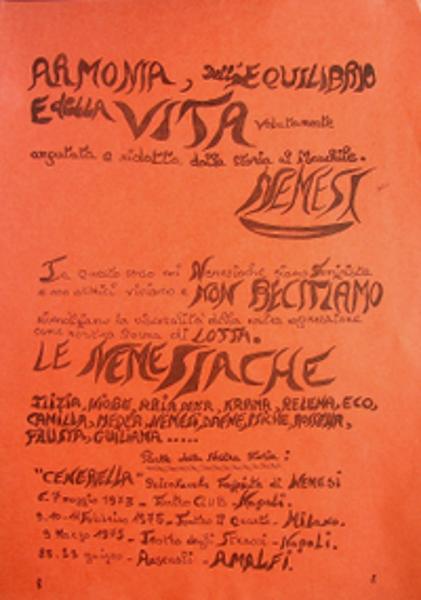 ARMONIA, dell'EQUILIBRIO
E della VITA volutamente
amputata e ridotta dalla storia al Maschile.
NEMESI
In questo senso noi Nemesiache siamo femministe
e non attrici viviamo e NON RECITIAMO
rivendichiamo la visceralità della nostra espressione
come nostra forma di LOTTA.
LE NEMESIACHE
NIOBE, ARIANNA, KARMA, HELENA, ECO,
CAMILLA, MEDEA, NEMESI, DAFNE, PSICHE,
FAUSTA, GIULIANA .....
Parte della Nostra Storia:
"CENERELLA" Psicofavola Femminista di NEMESI
6.7 maggio 1973 - Teatro Club - Napoli.
9.10.11 Febbraio 1975 - Teatro il Quarto - Milano.
9 Marzo 1975 - Teatro degli - Napoli.
giugno - Arsenali - AMALFI.